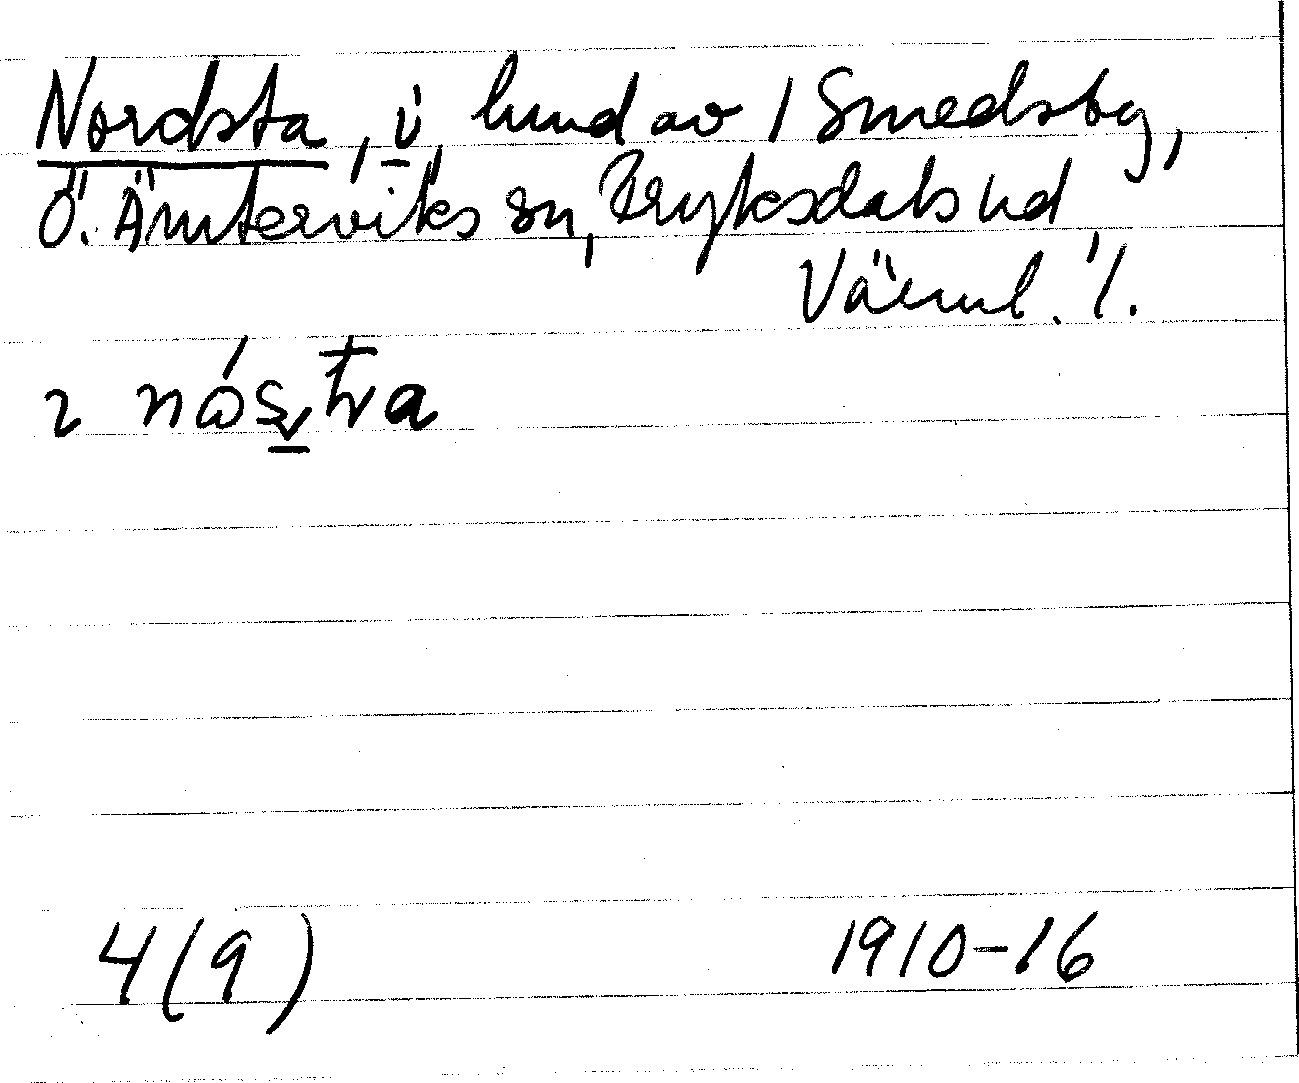 Nordsta, i, hmd av 1 Smedsby,
Ö. Ämterviks sn, Fryksdals hd
Värml. l.
4(9) 1910-16